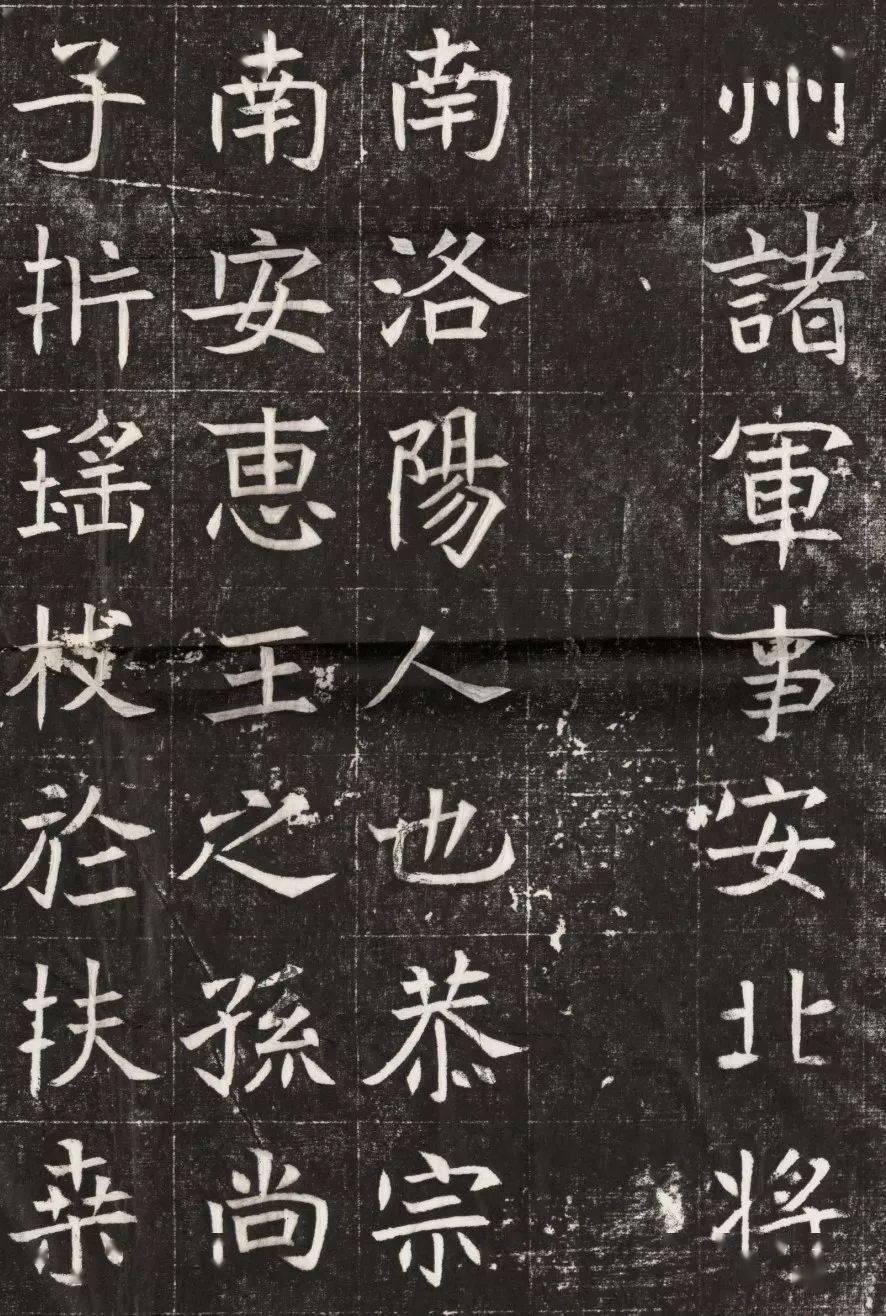 州諸軍事安北将
南洛陽人也恭宗
南安恵王之孫尚
子折瑤枝於扶桒